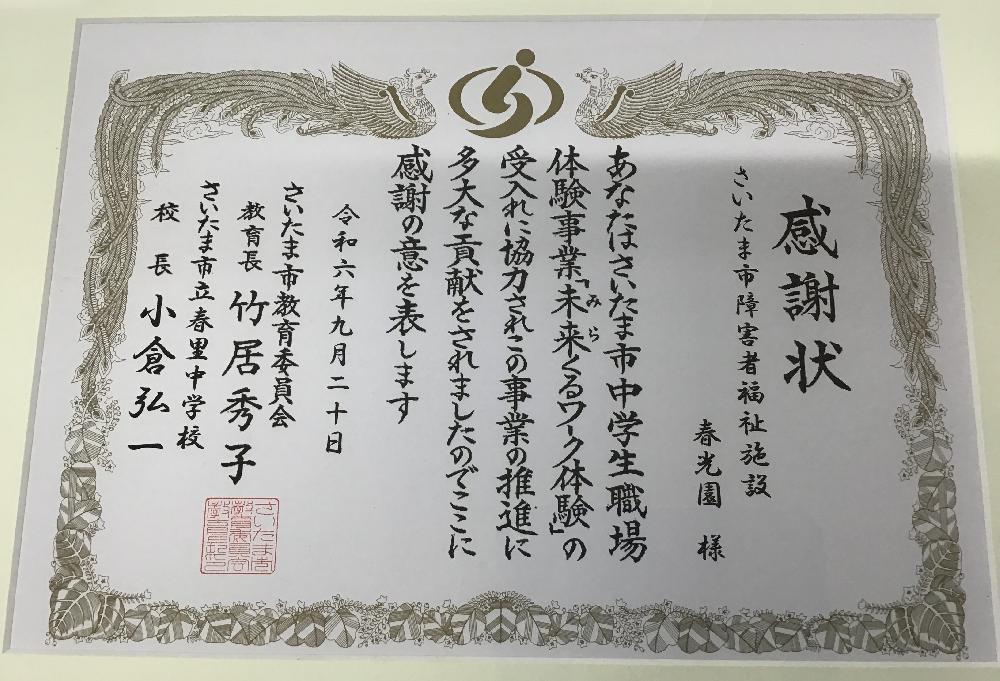 感謝状
さいたま市障害者福祉施設
春光園 様
あなたはさいたま市中学生職場
体験事業「未来くるワーク体験」の
みら
受入れに協力されこの事業の推進に
多大な貢献をされましたのでここに
感謝の意を表します
令和六年九月二十日
さいたま市教育委員会
教育長 竹居秀子
さいたま市立春里中学校
校長 小倉弘一